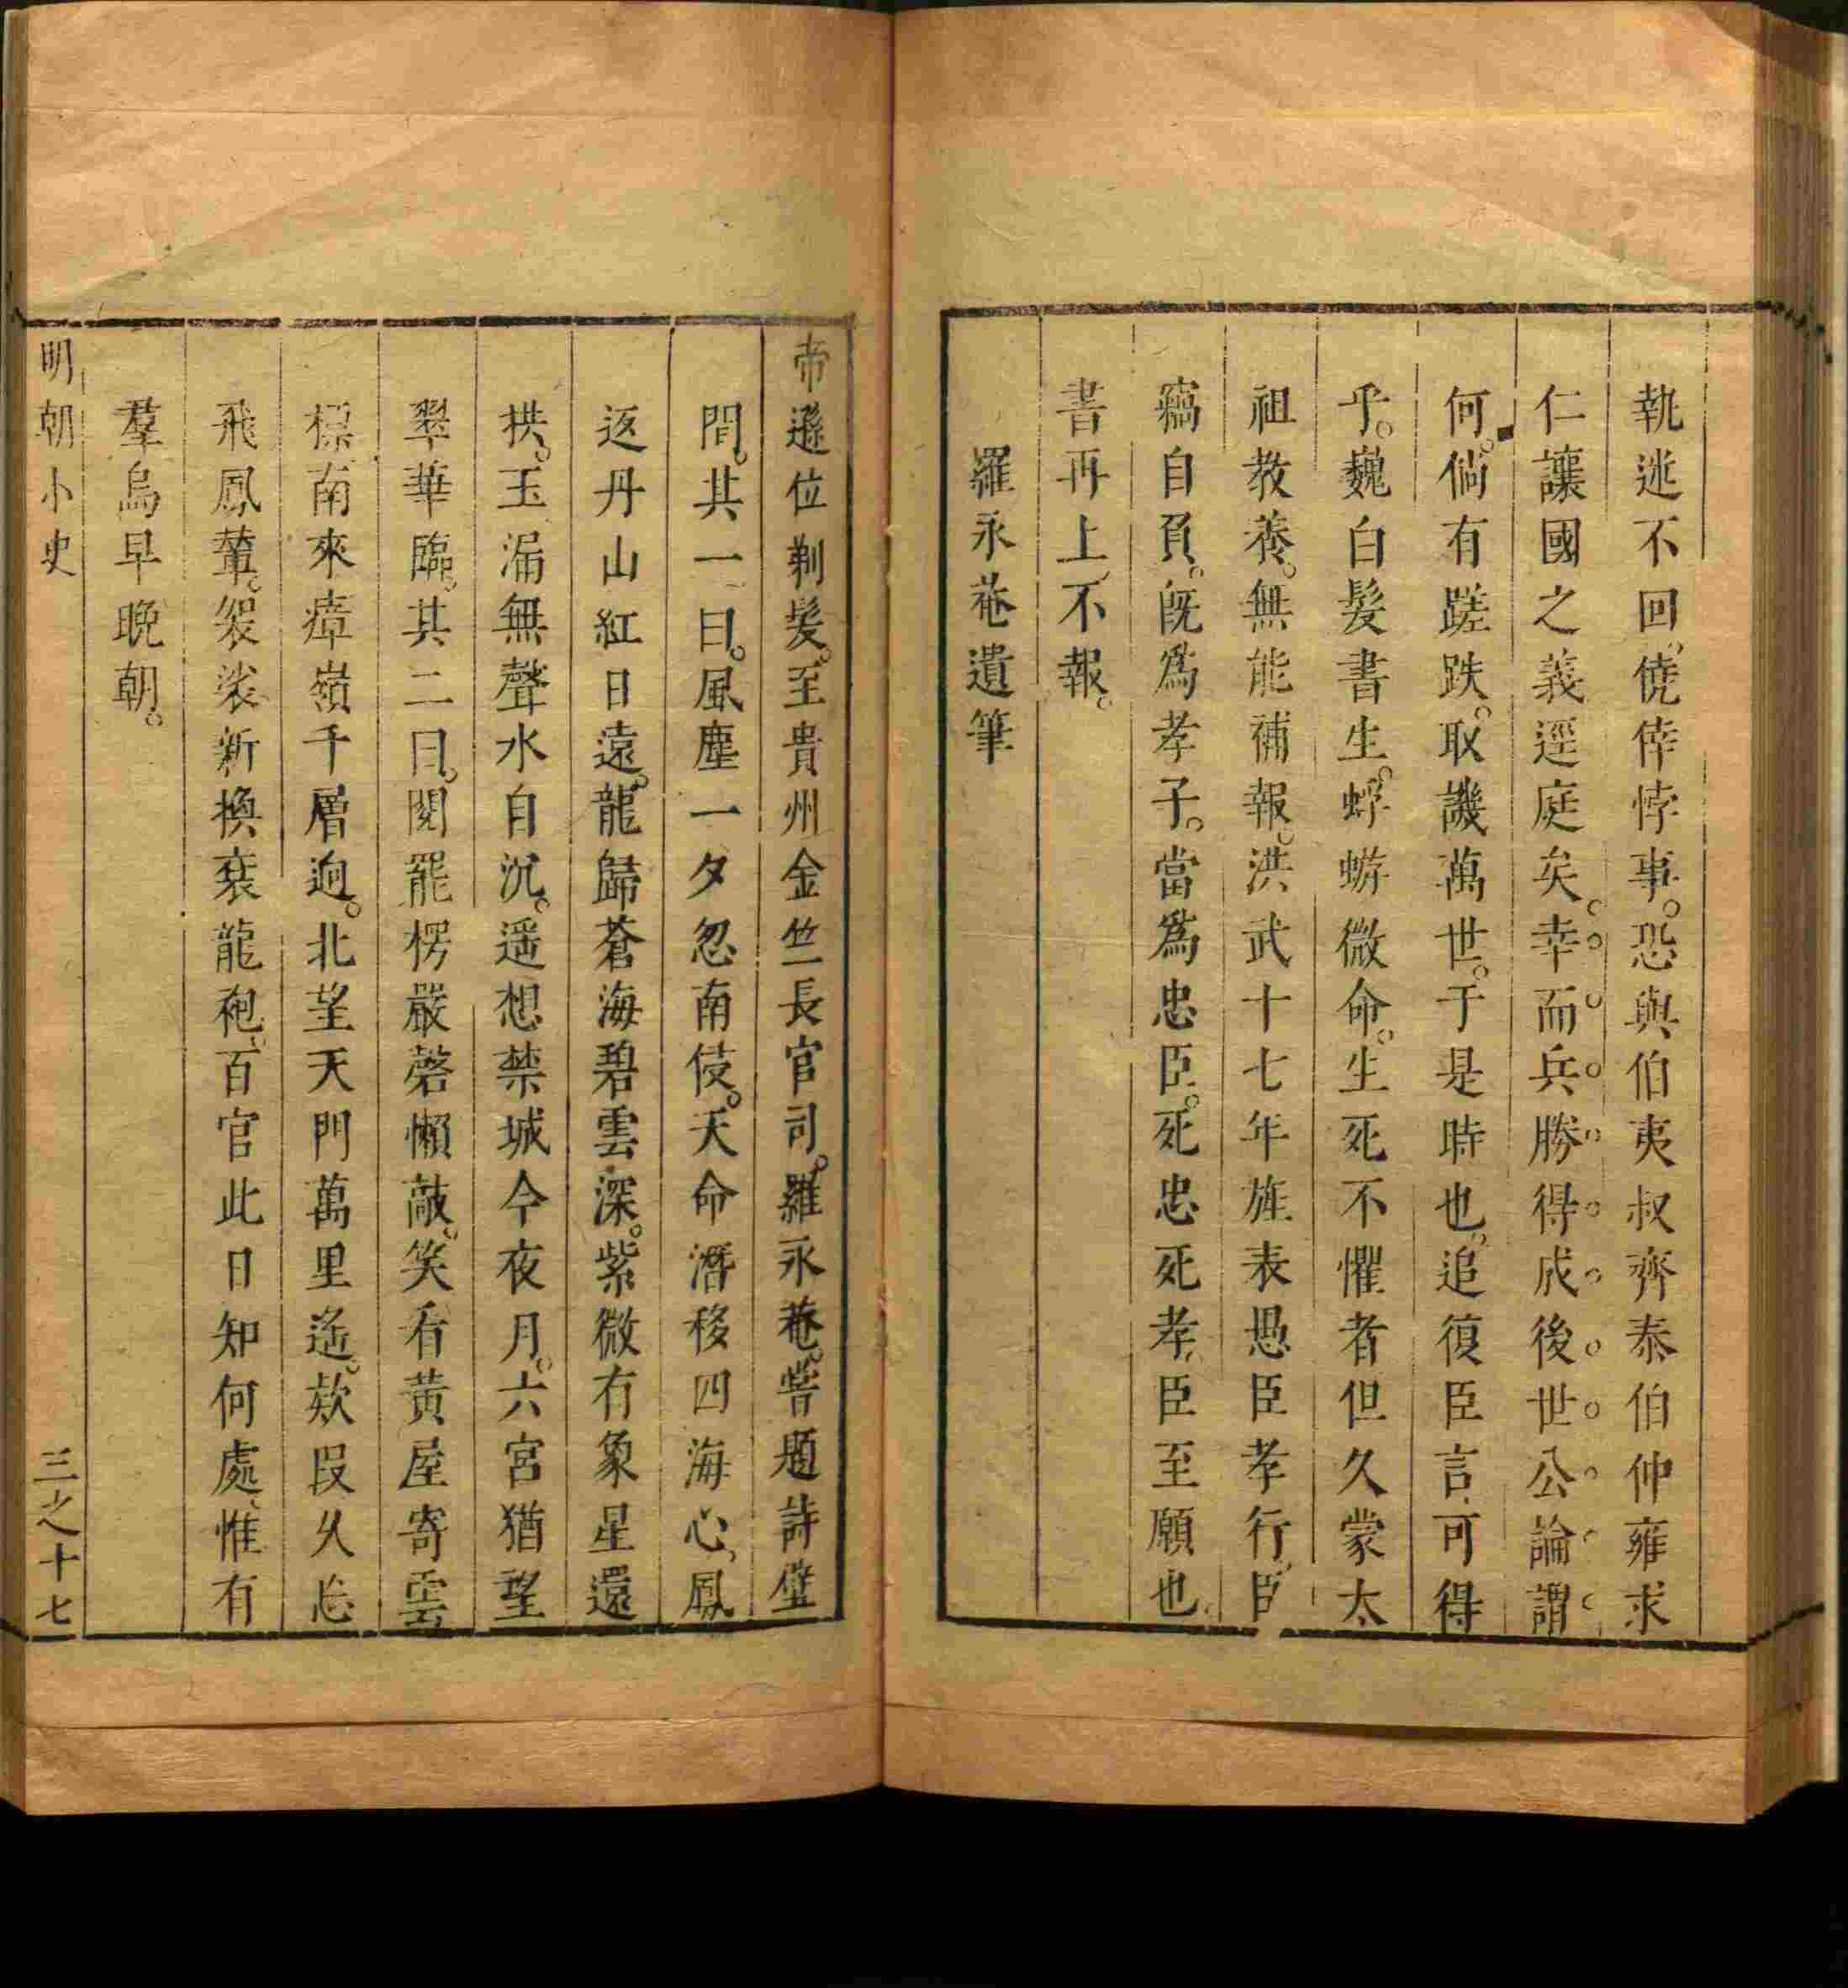 執迷不回僥倖悖事恐與伯夷叔齊泰伯仲雍求
仁讓國之義逕庭矣幸而兵勝得成後世公論謂
何倘有蹉跌取譏萬世于是時也追復臣言可得
乎巍白髮書生蜉蝣微命生死不懼者但久蒙太
祖教養無能補報洪武十七年旌表愚臣孝行臣
竊自負既爲孝子當爲忠臣死忠死孝臣至願也
書再上不報
羅永菴遺筆
帝遜位剃髮至貴州金竺長官司羅永菴嘗題詩壁
間其一曰風塵一夕忽南侵天命潛移四海心鳳
返丹山紅日遠龍歸蒼海碧雲深紫微有象星還
拱玉漏無聲水自沉遥想禁城今夜月六宮猶望
翠華臨其二曰閱罷楞嚴磬懶敲笑看黄屋寄雲
標南來瘴嶺千層逈北望天門萬里遙欵段久忘
飛鳳輦袈裟新換衮龍袍百官此日知何處惟有
羣烏早晚朝
明朝小史 三之十七